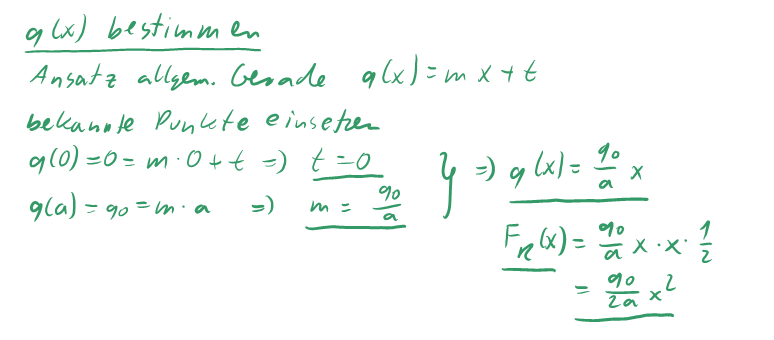 q(x) bestimmen
Ansatz allgem. Gerade q(x) = m x + t
bekannte Punkte einsetzen
q(0) = 0 = m · 0 + t => t = 0
q(a) = q0 = m · a => m = q0/a
} => q(x) = q0/a x
FR(x) = q0/a x · x · 1/2
= q0/2a x²